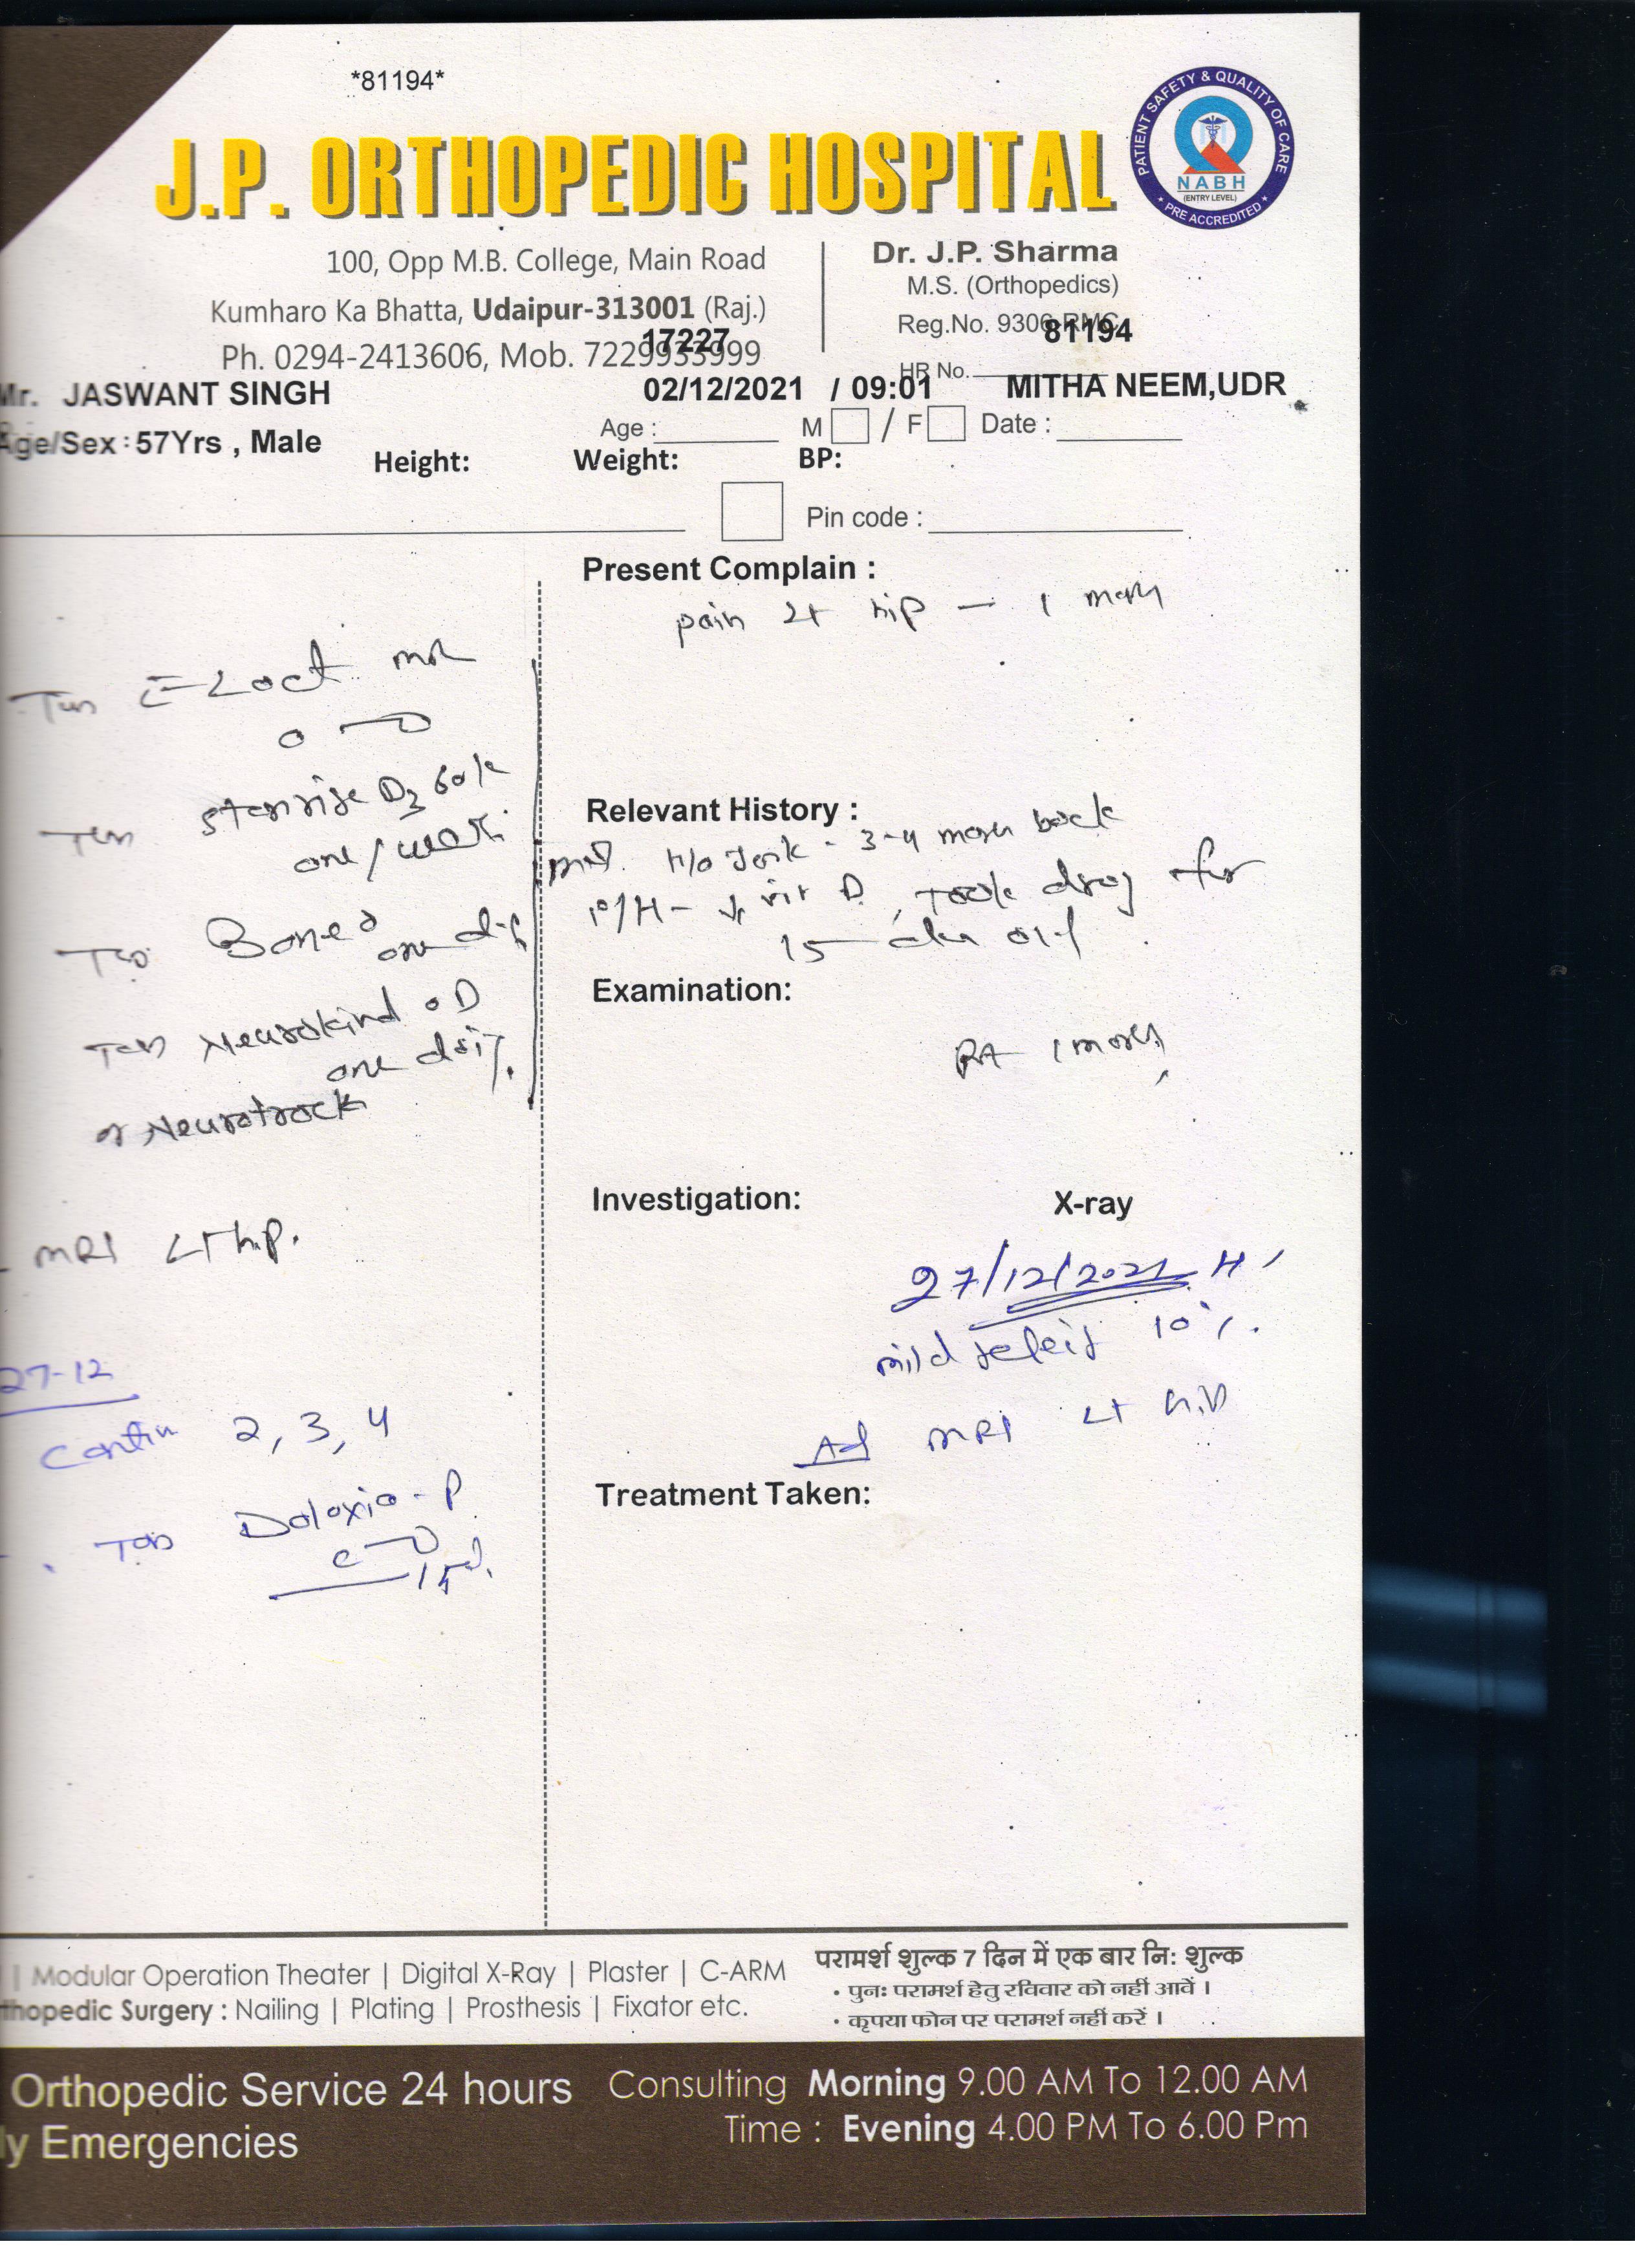 *81194*
PATIENT SAFETY & QUALITY OF CARE
NABH
(ENTRY LEVEL)
* PRE ACCREDITED *
J.P. ORTHOPEDIC HOSPITAL
100, Opp M.B. College, Main Road
Kumharo Ka Bhatta, Udaipur-313001 (Raj.)
Ph. 0294-2413606, Mob. 7229933999
17227
Dr. J.P. Sharma
M.S. (Orthopedics)
Reg.No. 9306 RMC
81194
HR No.
Mr. JASWANT SINGH 02/12/2021 / 09:01 MITHA NEEM,UDR
Age/Sex : 57Yrs , Male
Age : M / F Date :
Height: Weight: BP:
Pin code :
Present Complain :
pain Lt hip - 1
Relevant History :
H/o Jerk - 3-4 back
P/H - ↓ vit D, Took drug for
15
Examination:
Investigation: X-ray
27/12/2021
mild 10%.
Ad MRI Lt hip
Treatment Taken:
D3 60k
one / week
one
Neurokind OD
one daily
or Neurotrack
MRI LT hip.
27-12
Contin 2, 3, 4
Doloxia-P
| Modular Operation Theater | Digital X-Ray | Plaster | C-ARM
thopedic Surgery : Nailing | Plating | Prosthesis | Fixator etc.
परामर्श शुल्क 7 दिन में एक बार नि: शुल्क
• पुनः परामर्श हेतु रविवार को नहीं आवें ।
• कृपया फोन पर परामर्श नहीं करें ।
Orthopedic Service 24 hours
ly Emergencies
Consulting Morning 9.00 AM To 12.00 AM
Time : Evening 4.00 PM To 6.00 Pm